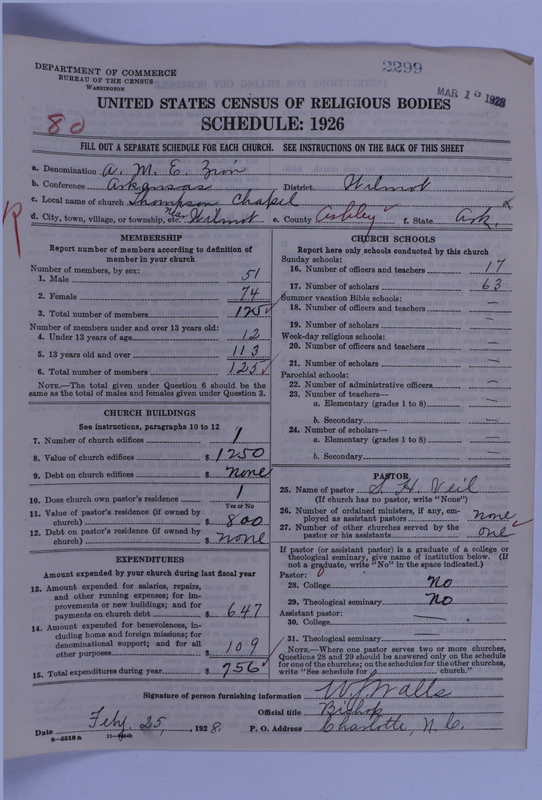 2299
MAR 15 1928
DEPARTMENT OF COMMERCE
BUREAU OF THE CENSUS
WASHINGTON
UNITED STATES CENSUS OF RELIGIOUS BODIES
SCHEDULE: 1926
80
FILL OUT A SEPARATE SCHEDULE FOR EACH CHURCH. SEE INSTRUCTIONS ON THE BACK OF THIS SHEET
a. Denomination A. M. E. Zion
b. Conference Arkansas District Wilmot
c. Local name of church Thompson Chapel
R d. City, town, village, or township, etc. Near Wilmot e. County Ashley f. State Ark.
MEMBERSHIP
Report number of members according to definition of
member in your church
Number of members, by sex:
1. Male 51
2. Female 74
3. Total number of members 125
Number of members under and over 13 years old:
4. Under 13 years of age 12
5. 13 years old and over 113
6. Total number of members 125
NOTE.—The total given under Question 6 should be
same as the total of males and females given under Question 3.
CHURCH BUILDINGS
See instructions, paragraphs 10 to 12
7. Number of church edifices 1
8. Value of church edifices $ 1250
9. Debt on church edifices $ none
10. Does church own pastor's residence 1
Yes or No
11. Value of pastor's residence (if owned by
church) $ 800
12. Debt on pastor's residence (if owned by
church) $ none
EXPENDITURES
Amount expended by your church during last fiscal year
13. Amount expended for salaries, repairs,
and other running expenses; for im-
provements or new buildings; and for
payments on church debt $ 647
14. Amount expended for benevolences, in-
cluding home and foreign missions; for
denominational support; and for all
other purposes $ 109
15. Total expenditures during year $ 756
CHURCH SCHOOLS
Report here only schools conducted by this church
Sunday schools:
16. Number of officers and teachers 17
17. Number of scholars 63
Summer vacation Bible schools:
18. Number of officers and teachers —
19. Number of scholars —
Week-day religious schools:
20. Number of officers and teachers —
21. Number of scholars —
Parochial schools:
22. Number of administrative officers —
23. Number of teachers—
a. Elementary (grades 1 to 8) —
b. Secondary —
24. Number of scholars—
a. Elementary (grades 1 to 8) —
b. Secondary —
PASTOR
25. Name of pastor S. H. Veil
(If church has no pastor, write "None")
26. Number of ordained ministers, if any, em-
ployed as assistant pastors none
27. Number of other churches served by the
pastor or his assistants one
If pastor (or assistant pastor) is a graduate of a college or
theological seminary, give name of institution below. (If
not a graduate, write "No" in the space indicated.)
Pastor:
28. College No
29. Theological seminary No
Assistant pastor:
30. College —
31. Theological seminary —
NOTE.—Where one pastor serves two or more churches,
Questions 28 and 29 should be answered only on the schedule
for one of the churches; on the schedules for the other churches,
write "See schedule for church."
Signature of person furnishing information W J Walls
Official title Bishop
Date Feby. 25, 1928. P. O. Address Charlotte, N. C.
8—5518a